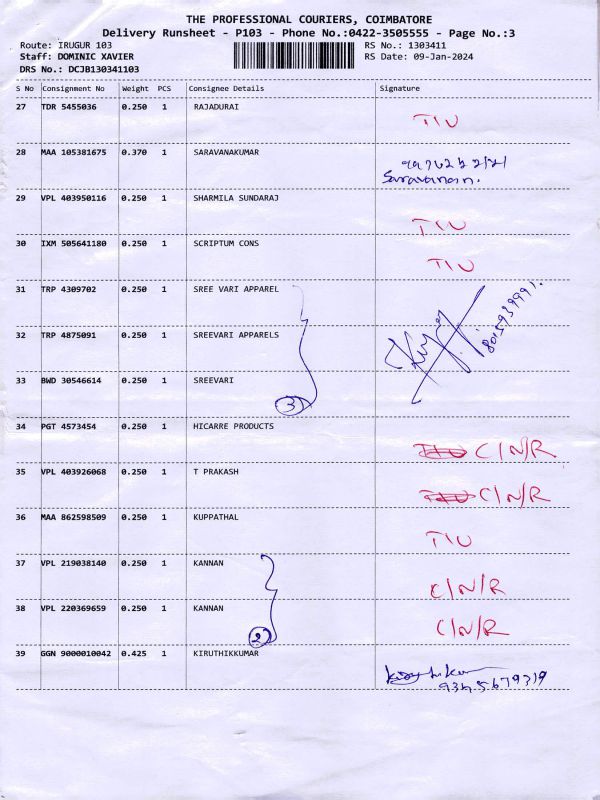 THE PROFESSIONAL COURIERS, COIMBATORE
Delivery Runsheet - P103 - Phone No.:0422-3505555 - Page No.:3
Route: IRUGUR 103 RS No.: 1303411
Staff: DOMINIC XAVIER RS Date: 09-Jan-2024
DRS No.: DCJB130341103
S No Consignment No Weight PCS Consignee Details Signature
27 TDR 5455036 0.250 1 RAJADURAI
28 MAA 105381675 0.370 1 SARAVANAKUMAR
Saravanan.
29 VPL 403950116 0.250 1 SHARMILA SUNDARAJ
30 IXM 505641180 0.250 1 SCRIPTUM CONS
31 TRP 4309702 0.250 1 SREE VARI APPAREL
32 TRP 4875091 0.250 1 SREEVARI APPARELS
33 BWD 30546614 0.250 1 SREEVARI
3
34 PGT 4573454 0.250 1 HICARRE PRODUCTS
C/N/R
35 VPL 403926068 0.250 1 T PRAKASH
C/N/R
36 MAA 862598509 0.250 1 KUPPATHAL
37 VPL 219038140 0.250 1 KANNAN
C/N/R
38 VPL 220369659 0.250 1 KANNAN
C/N/R
2
39 GGN 9000010042 0.425 1 KIRUTHIKKUMAR